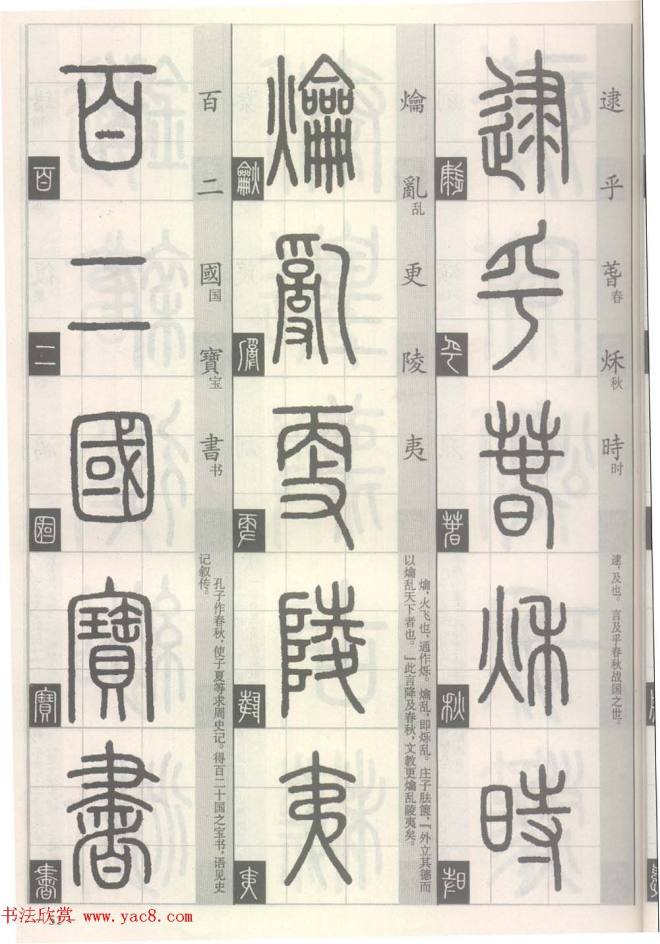 逮乎萅秌時
逮 乎 萅春 秌秋 時时
逮,及也。言及乎春秋战国之世。
爚亂更陵夷
爚 亂乱 更 陵 夷
爚,火飞也,通作烁。爚乱,即烁乱。庄子胠箧,『外立其德而
以爚乱天下者也。』此言降及春秋,文教更爚乱陵夷矣。
百二國寶書
百 二 國国 寶宝 書书
孔子作春秋,使子夏等求周史记。得百二十国之宝书,语见史
记叙传。
书法欣赏 www.yac8.com